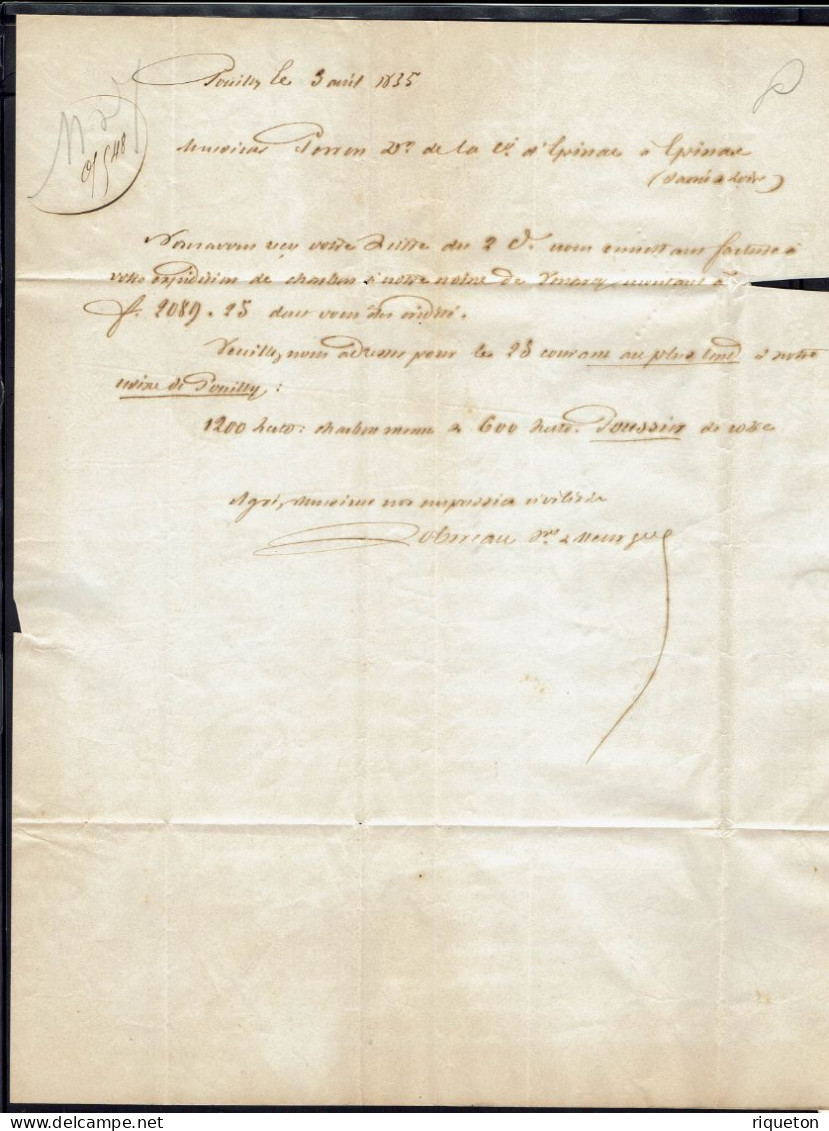 Pouilly le 3 avril 1835
Monsieur Perron Dr. de la Cie d'Epinac à Epinac
(Saone & Loire)
Nous avons reçu votre Lettre du 2 Ct. nous remettant facture à
votre expédition de charbon à notre usine de Venarey, montant à
f. 2089. 25 dont vous êtes crédité.
Veuillez nous adresser pour le 25 courant au plus tard à notre
usine de Pouilly :
1200 hecto: charbon menu & 600 hecto. Poussier de coke
Agréez, Monsieur nos civilités
& Meurgey
delcampe.net
riqueton